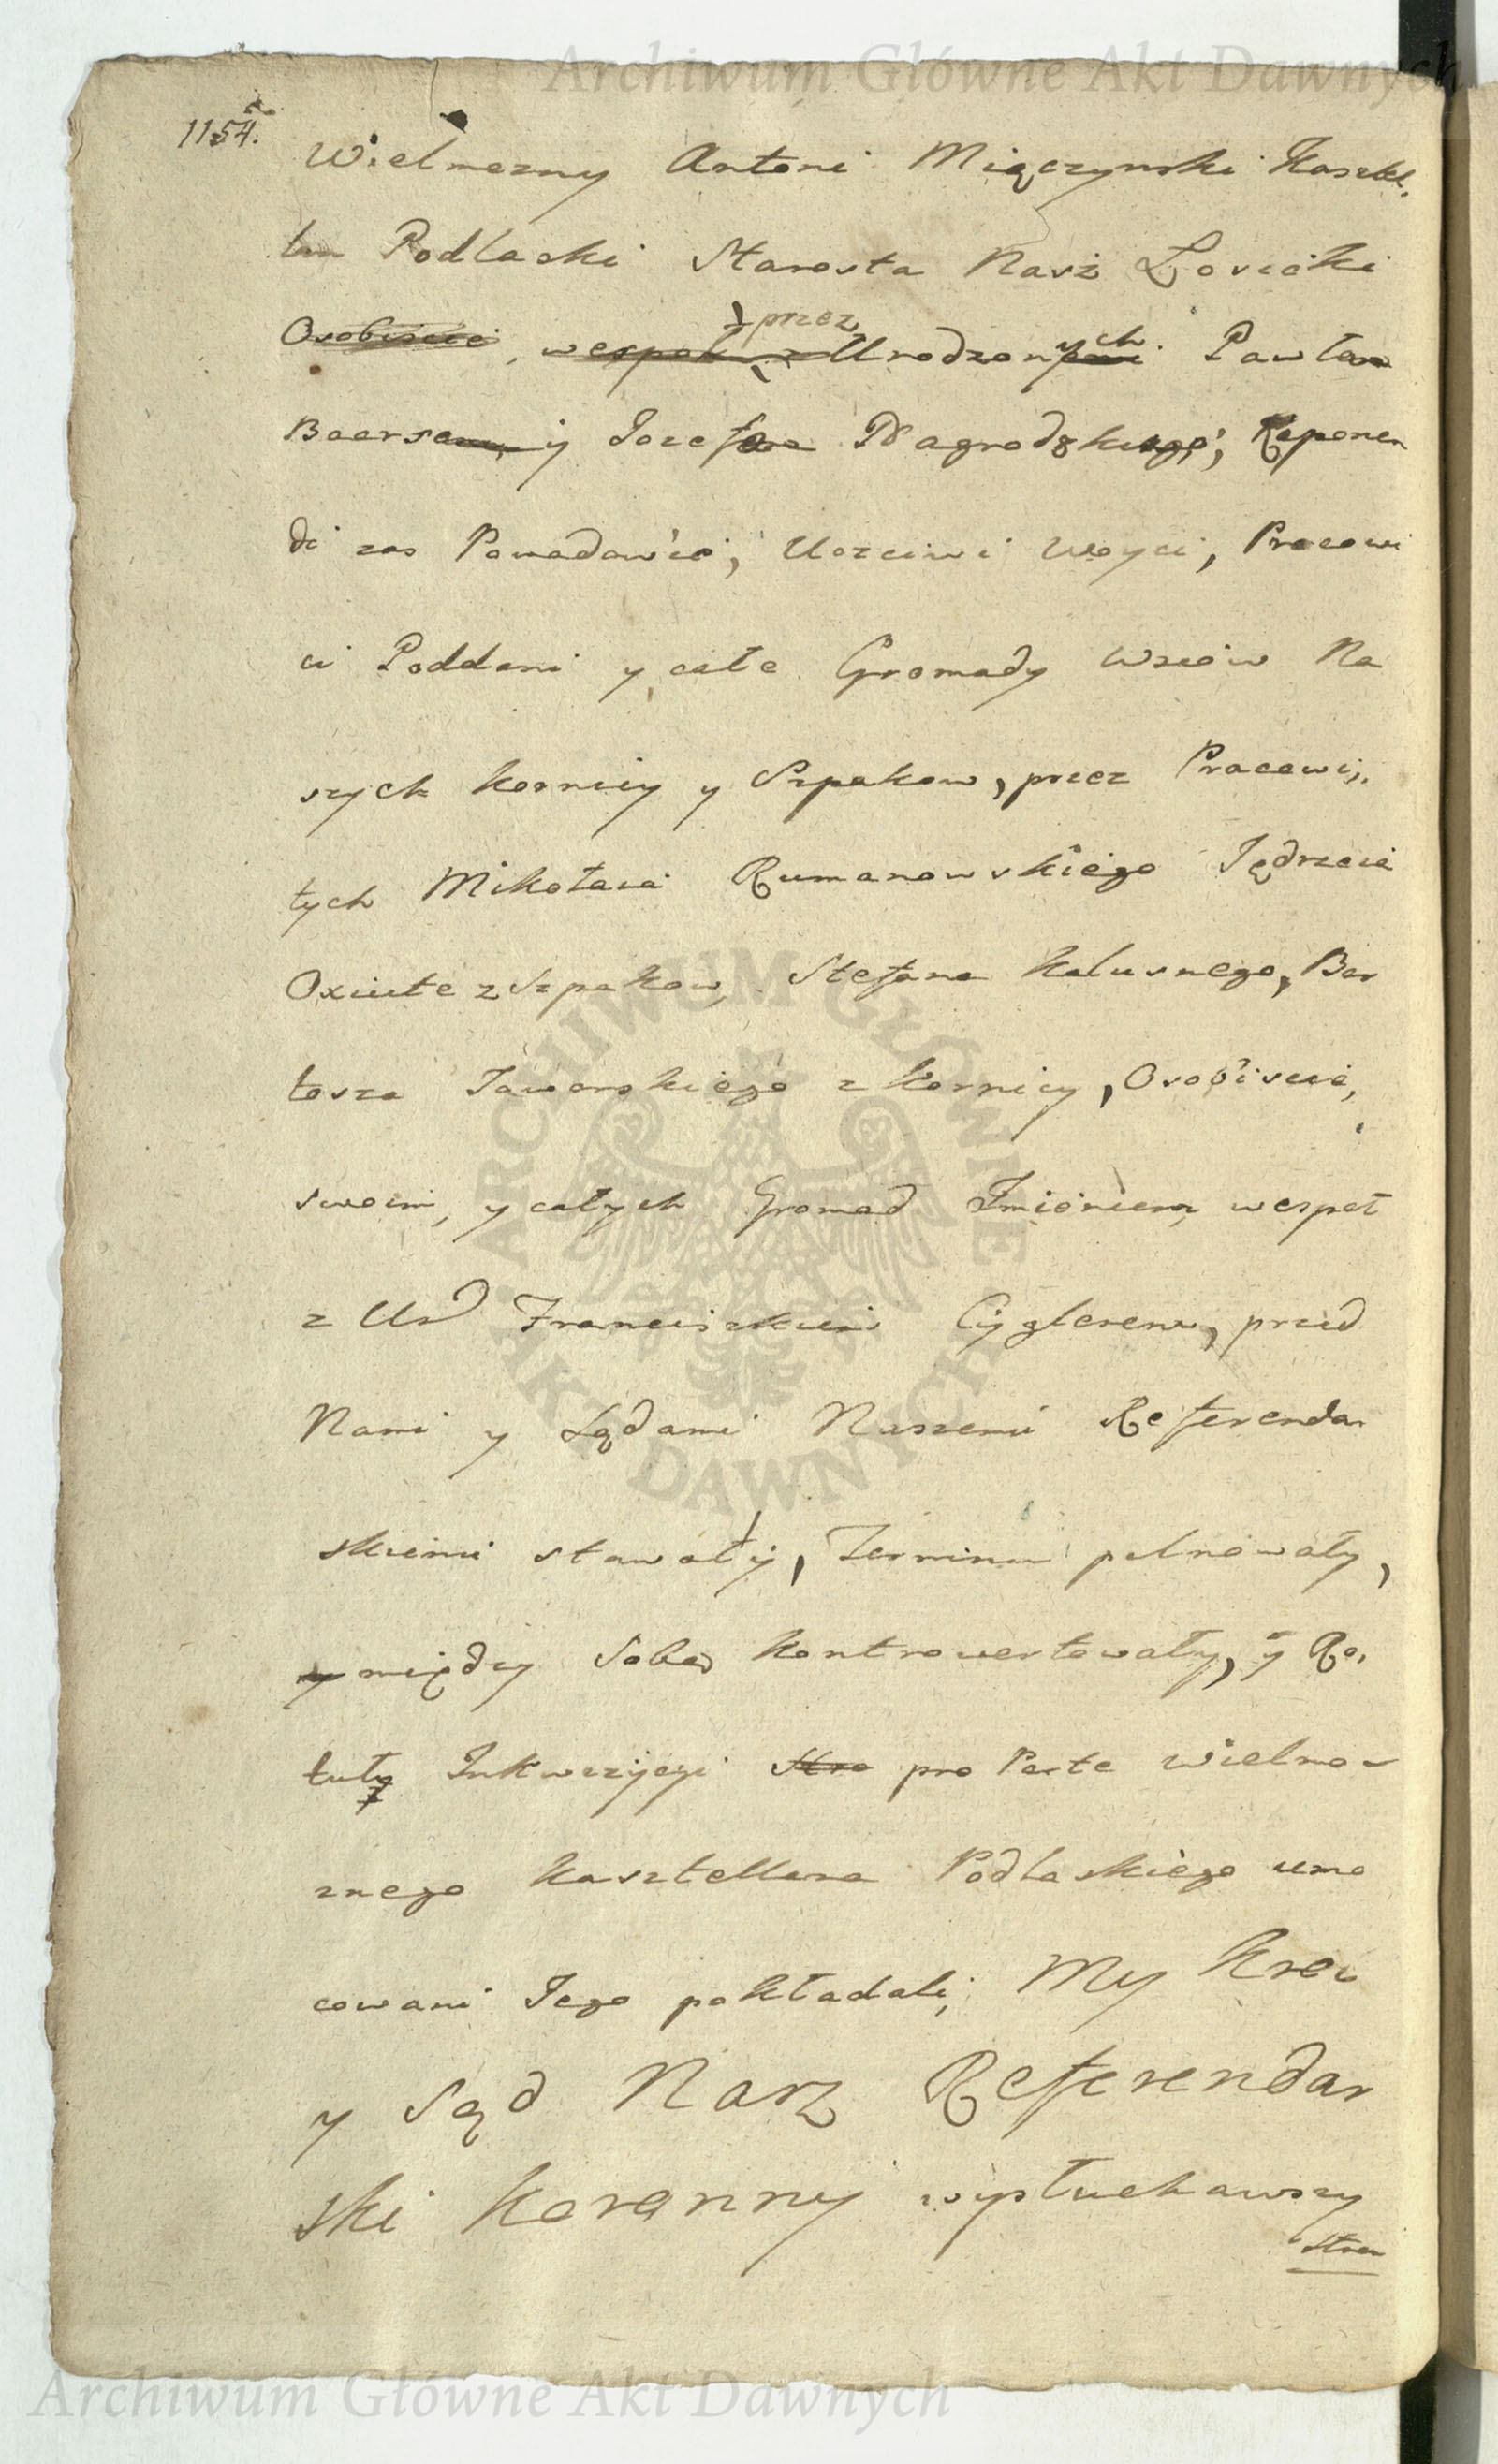 Archiwum Główne Akt Dawnych
1154.
Wielmozny Antoni Miączynski Kasztel
lan Podlaski Starosta Nasz Łosicki
Osobiscie, wespoł z przez Urodzonych Pawła
Baersa y Jozefa Nagrodzkiego,
di zas Powodowie, Uczciwi Woyci, Pracowi
ci Poddani y całe Gromady Wsiow Na
szych Kornicy y Szpakow, przez Pracowi,
tych Mikołaia Rumanowskiego Jędrzeia
Oxiute z Szpakow, Stefana Kalusnego, Bar
tosza Jaworskiego z Kornicy, Osobiscie,
swoim, y całych Gromad Imieniem wespoł
z Ur Franciszkiem Cyglerem, przed
Nami y Sądami Naszemi Referendar
skiemi stawały, Terminu pilnowały,
y między Sobą kontrowertowały, y Ro,
tuły Inkwizycyi pro Parte Wielmo
znego Kasztellana Podlaskiego umo
cowani Jego pokładali, My Krol
y Sąd Nasz Referendar
ski Koronny wysłuchawszy
Stron
ARCHIWUM GŁÓWNE AKT DAWNYCH
Archiwum Główne Akt Dawnych